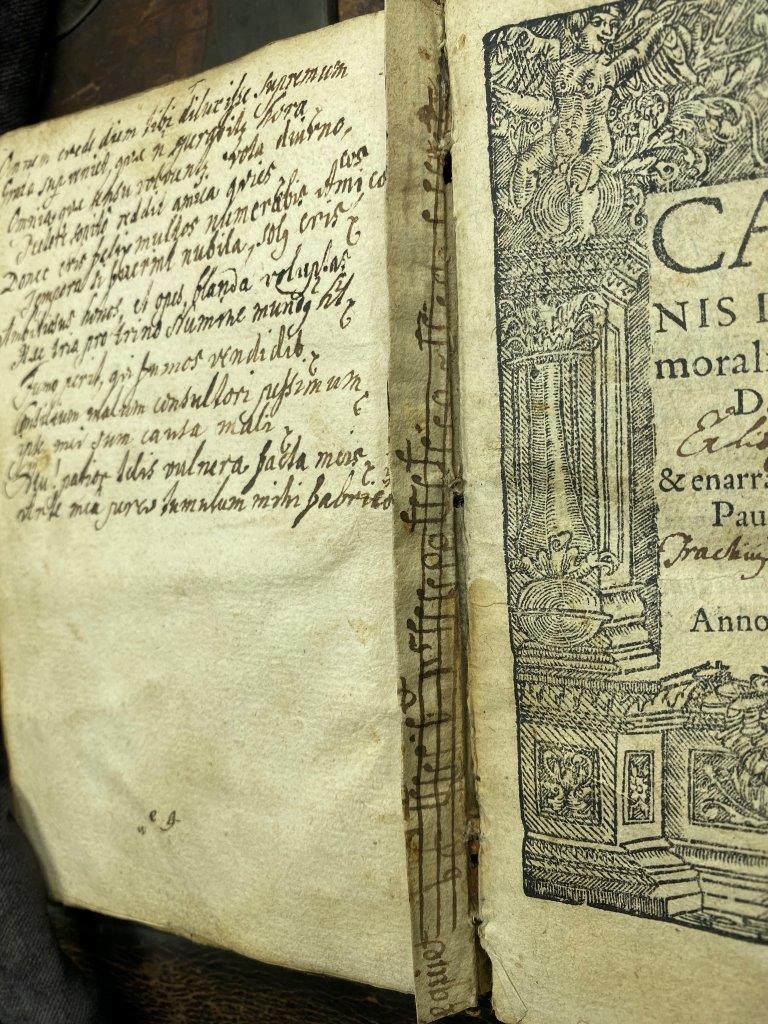 Omnem crede diem tibi diluxisse supremum
Grata superveniet, quæ n sperabitr hora
Omnia, quæ sensu volvunt vota diurno,
Pectore sopito reddit amica quies
Donec eris felix multos numerabis Amicos
Tempora si fuerint nubila, solq eris
Ambitiosus honos, et opes, blanda voluptas
Hæc tria pro trino Numine mundq
Fumo perit, qui fumos vendidit
Consilium malum consultori pessimum
ipse mihi sum causa mali
Heu! patior telis vulnera facta meis
mea pereo tumulum mihi fabrico
CA
NIS
morali
D
& enarra
Pau
Anno